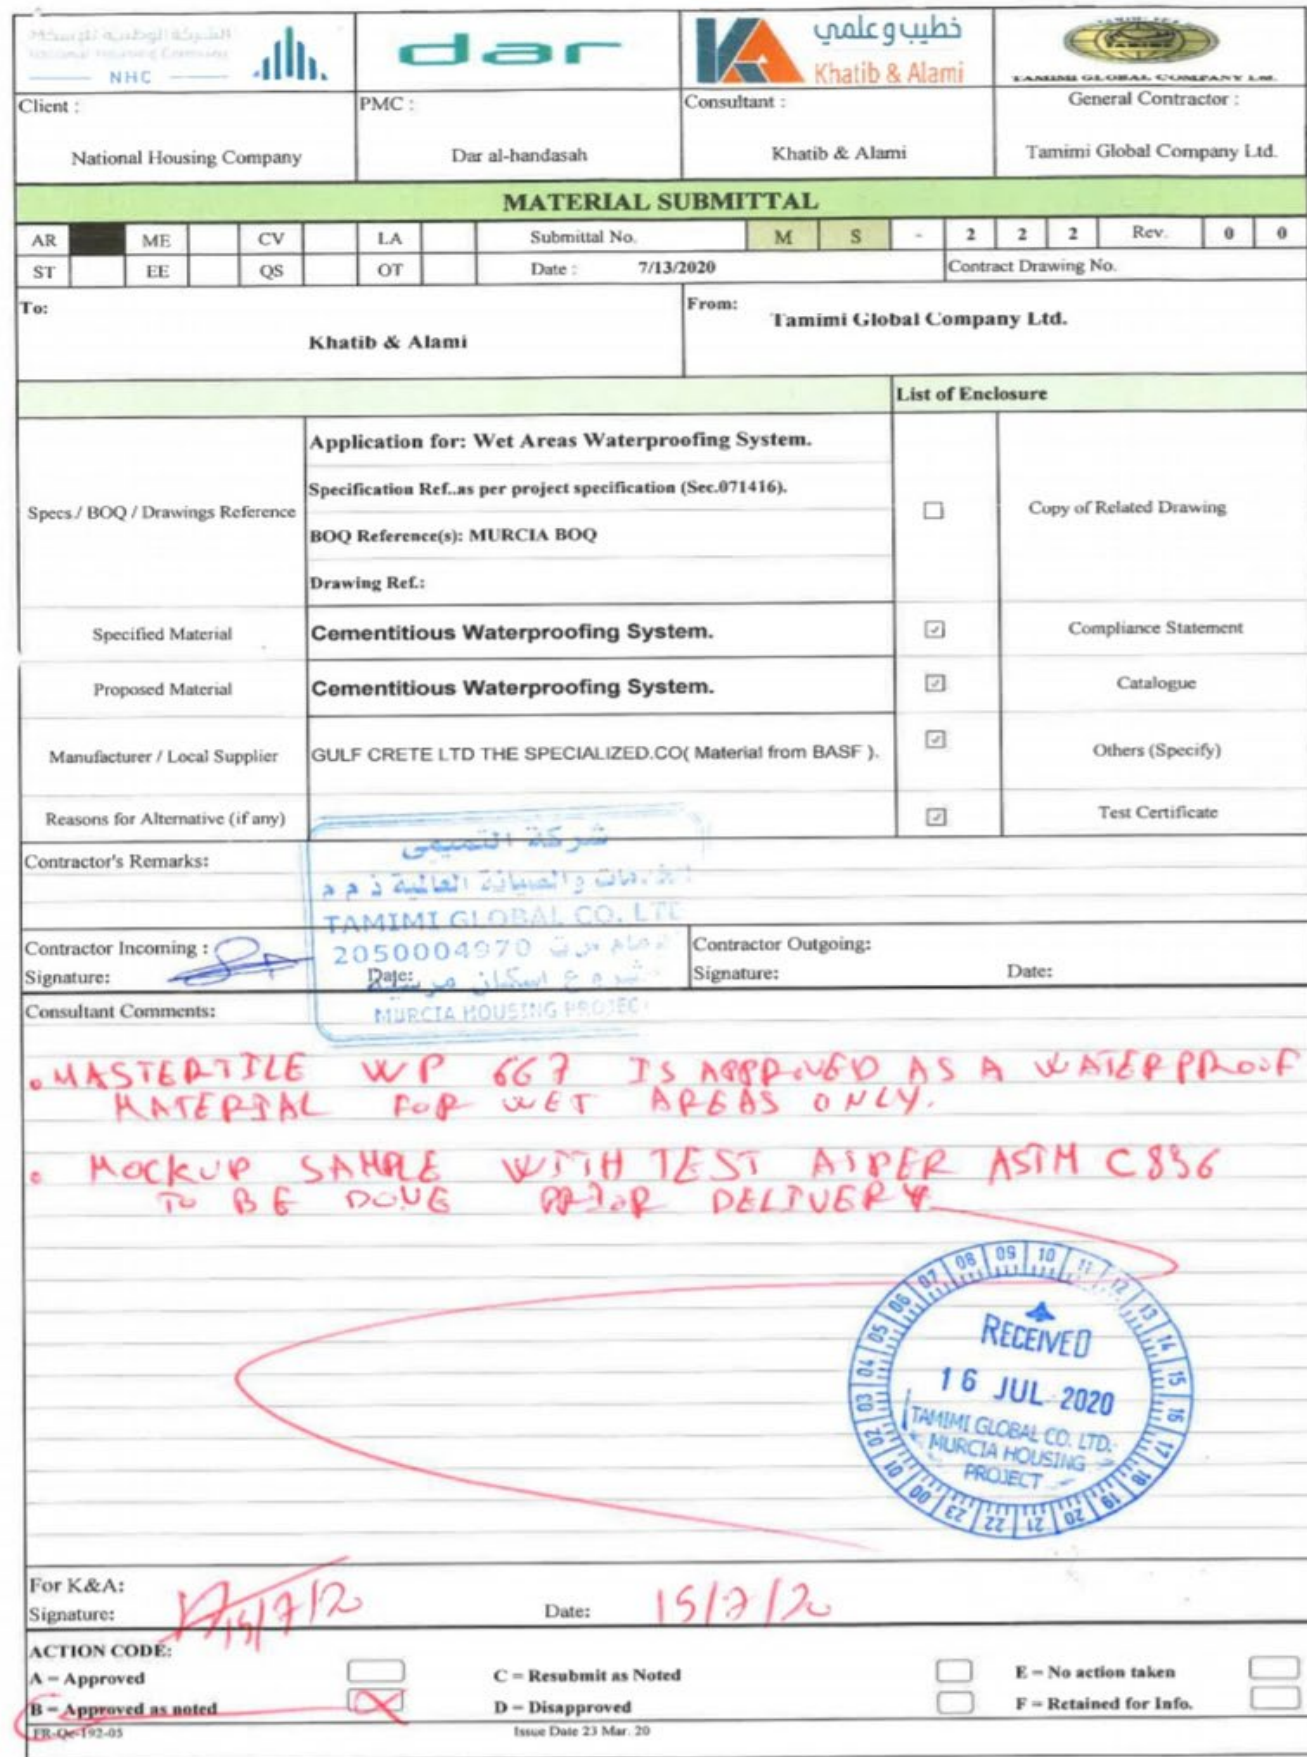 الشركة الوطنية للإسكان
National Housing Company
NHC
dar
خطيب وعلمي
Khatib & Alami
TAMIMI
TAMIMI GLOBAL COMPANY Ltd.
Client :
National Housing Company
PMC :
Dar al-handasah
Consultant :
Khatib & Alami
General Contractor :
Tamimi Global Company Ltd.
MATERIAL SUBMITTAL
AR ME CV LA Submittal No. M S - 2 2 2 Rev. 0 0
ST EE QS OT Date : 7/13/2020 Contract Drawing No.
To:
Khatib & Alami
From:
Tamimi Global Company Ltd.
List of Enclosure
Specs./ BOQ / Drawings Reference
Application for: Wet Areas Waterproofing System.
Specification Ref..as per project specification (Sec.071416).
BOQ Reference(s): MURCIA BOQ
Drawing Ref.:
Copy of Related Drawing
Specified Material Cementitious Waterproofing System. Compliance Statement
Proposed Material Cementitious Waterproofing System. Catalogue
Manufacturer / Local Supplier GULF CRETE LTD THE SPECIALIZED.CO( Material from BASF ). Others (Specify)
Reasons for Alternative (if any) Test Certificate
Contractor's Remarks:
شركة التميمي
والصيانة العالمية ذ م م
TAMIMI GLOBAL CO. LTD
2050004970
MURCIA HOUSING PROJECT
Contractor Incoming :
Signature: Date:
Contractor Outgoing:
Signature: Date:
Consultant Comments:
• MASTERTILE WP 667 IS APPROVED AS A WATERPROOF
MATERIAL FOR WET AREAS ONLY.
• MOCKUP SAMPLE WITH TEST AS PER ASTM C836
TO BE DONE PRIOR DELIVERY
00 01 02 03 04 05 06 07 08 09 10 11 12 13 14 15 16 17 18 19 20 21 22 23
RECEIVED
16 JUL 2020
TAMIMI GLOBAL CO. LTD.
MURCIA HOUSING
PROJECT
For K&A:
Signature: 15/7/20 Date: 15/7/20
ACTION CODE:
A = Approved C = Resubmit as Noted E = No action taken
B = Approved as noted D = Disapproved F = Retained for Info.
FR-Qc-192-05 Issue Date 23 Mar. 20